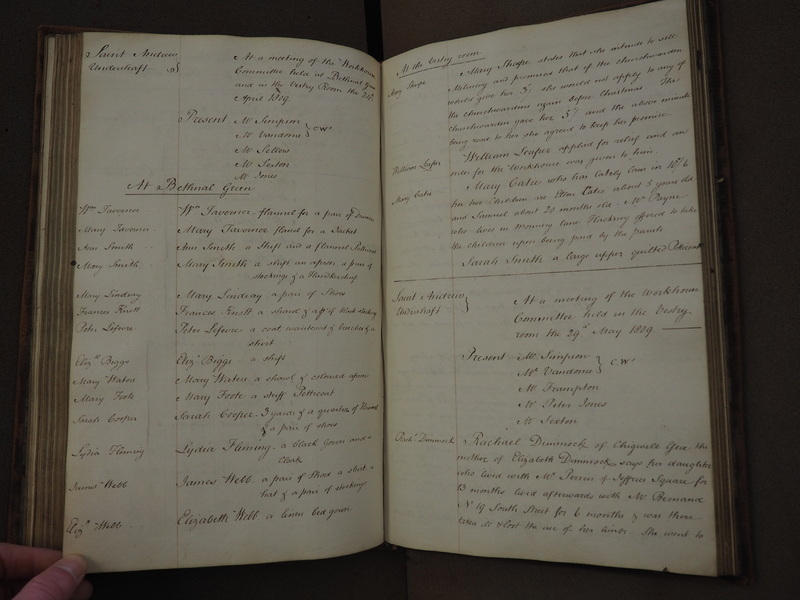 Saint Andrew
Undershaft
At a meeting of the Workhouse
Committee held at Bethnal Green
and in the Vestry Room the 24th
April 1809.
Present Mr Simpson
Mr Vandome } CWs
Mr Sellers
Mr Sexton
Mr Jones
At Bethnal Green
Wm Tavenor Wm Tavenor flannel for a pair of Drawers
Mary Tavenor Mary Tavenor flannel for a Jacket
Ann Smith Ann Smith a Shift and a flannel Petticoat
Mary Smith Mary Smith a shift an apron, a pair of
stockings & a Handkerchief
Mary Lindsay Mary Lindsay a pair of Shoes
Frances Knott Frances Knott a shawl & a pr of black stockings
Peter Lefevre Peter Lefevre a coat waistcoat & breeches & a
shirt
Elizth Biggs Elizth Biggs a shift
Mary Waters Mary Waters a shawl & coloured apron
Mary Foote Mary Foote a stuff Petticoat
Sarah Cooper Sarah Cooper 3 yards & a quarter of
& a pair of shoes
Lydia Fleming Lydia Fleming a black gown and a
Cloak
James Webb James Webb a pair of Shoes a shirt a
hat & a pair of stockings
Elizth Webb Elizabeth Webb a linen bed gown
At the Vestry room
Mary Sharpe Mary Sharpe states that she intends to sell
Millinery and promised that if the churchwarden
would give her 5/- she would not apply to any of
the churchwardens again before Christmas The
churchwarden gave her 5/- and the above minute
being read to her she agreed to keep her promise
William Leafer William Leafer applied for relief and an
order for the Workhouse was given to him.
Mary Catie Mary Catie who has lately Lain in
her two children are Ellen Catie about 5 years old
and Samuel about 20 months old. Mr Payne
who lives in Mourning lane Hackney offered to take
the children upon being paid by the parish
Sarah Smith a large upper quilted Petticoat
Saint Andrew
Undershaft
At a meeting of the Workhouse
Committee held in the Vestry
room the 29th May 1809.
Present Mr Simpson
Mr Vandome } CWs
Mr Frampton
Mr Peter Jones
Mr Sexton
Rachl Dimmock Rachael Dimmock of Chigwell the
mother of Elizabeth Dimmock says her daughter
who lived with Mr Perrin of Jeffries Square for
13 months lived afterwards with Mr
No 19 South Street for 6 months & was there
taken ill & lost the use of her limbs. She went to